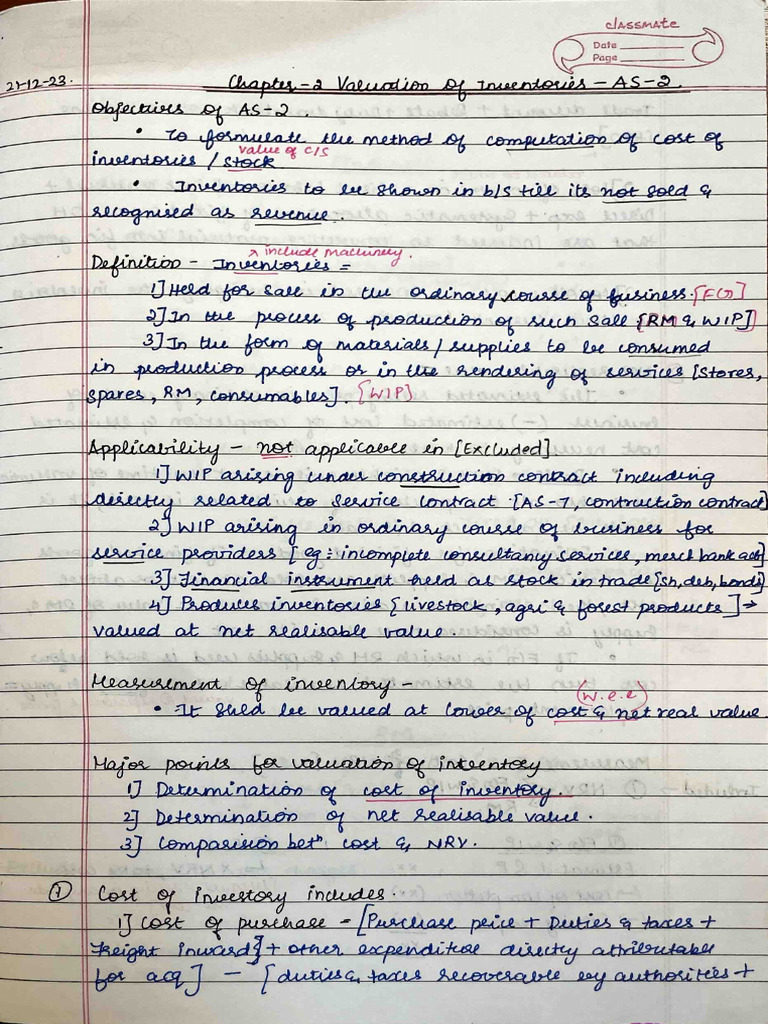 classmate
Date
Page
21-12-23.
Chapter-2 Valuation Of Inventories - AS-2.
Objectives of AS-2.
• To formulate the method of computation of cost of
value of C/S
inventories / stock
• Inventories to be shown in b/s till its not sold &
recognised as revenue.
include machinery.
Definition - Inventories =
1] Held for sale in the ordinary course of business. [FG]
2] In the process of production of such sale [RM & WIP]
3] In the form of materials / supplies to be consumed
in production process or in the rendering of services [stores,
spares, RM, consumables]. [WIP]
Applicability - not applicable in [Excluded]
1] WIP arising under construction contract including
directly related to service contract. [AS-7, contruction contract]
2] WIP arising in ordinary course of business for
service providers [eg: incomplete consultancy services, merch bank act]
3] Financial instrument held as stock in trade [sh, deb, bonds]
4] Produces inventories [livestock, agri & forest products] →
valued at net realisable value.
Measurement of inventory -
(W.e.l)
• It shld be valued at lower of cost & net real value
Major points for valuation of inventory
1] Determination of cost of inventory.
2] Determination of net realisable value.
3] Comparision betⁿ cost & NRV.
① Cost of inventory includes.
1] Cost of purchase = [Purchase price + Duties & taxes +
Freight inward] + other expenditure directly attributable
for acq] - [duties & taxes recoverable by authorities +